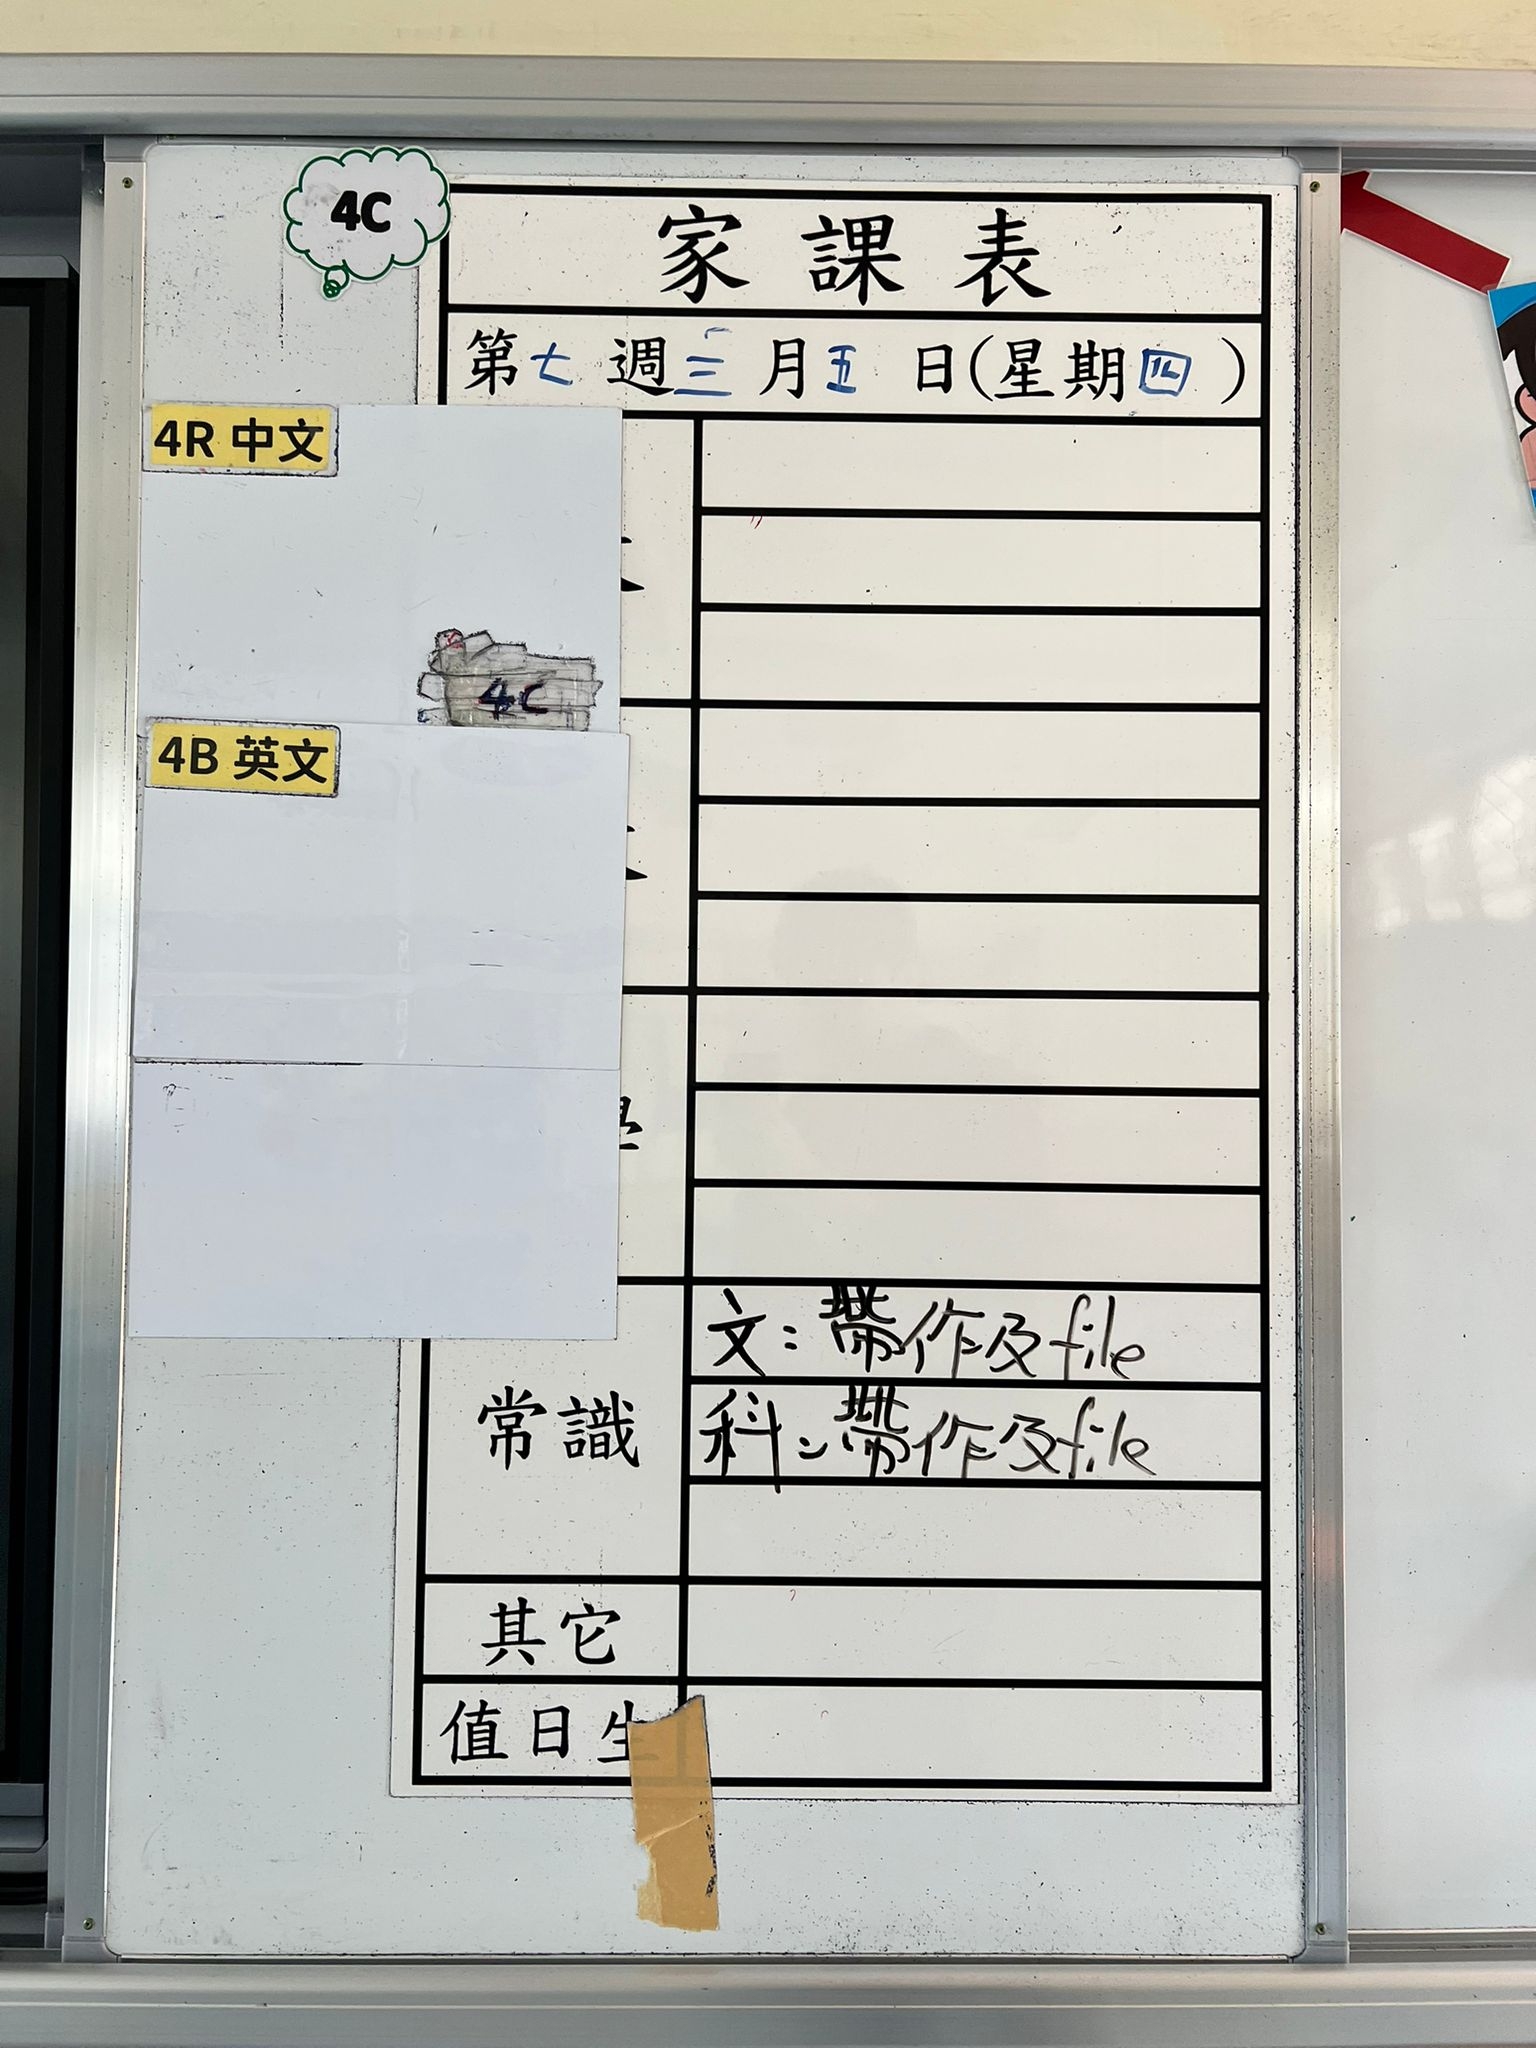 4C
家課表
第七週三月五日(星期四)
4R 中文
4C
4B 英文
文：帶作及file
常識
科：帶作及file
其它
值日生